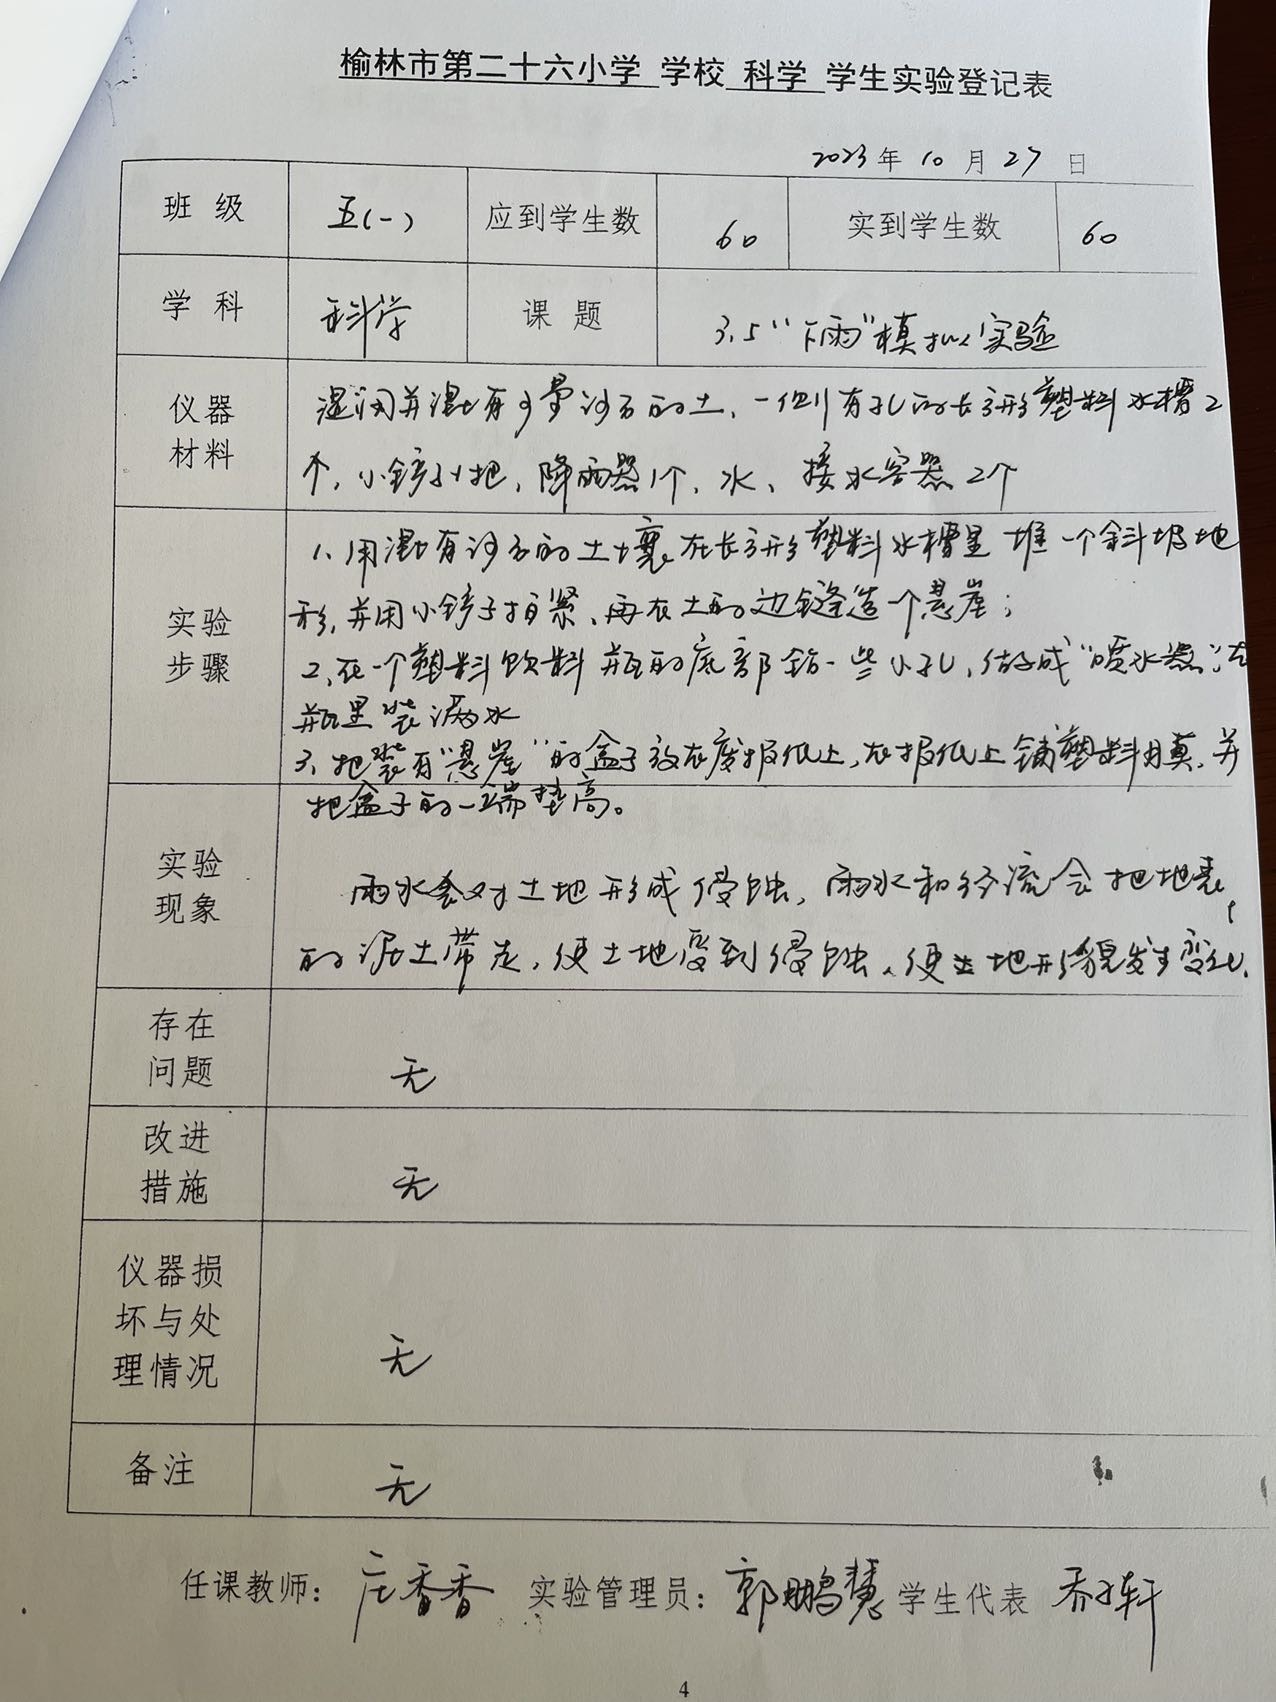 榆林市第二十六小学 学校 科学 学生实验登记表
2023年10月27日
班级 五(一) 应到学生数 60 实到学生数 60
学科 科学 课题 3.5“下雨”模拟实验
仪器材料
湿润并混有少量沙石的土、一侧有孔的长方形塑料水槽2
个,小铲子1把,降雨器1个、水、接水容器2个
实验步骤
1、用混有沙石的土壤在长方形塑料水槽里堆一个斜坡地
形,并用小铲子拍紧、再在土的边缝造一个悬崖;
2、在一个塑料饮料瓶的底部钻一些小孔,做成“喷水器”;在
瓶里装满水
3、把装有“悬崖”的盒子放在废报纸上,在报纸上铺塑料膜,并
把盒子的一端垫高。
实验现象
雨水会对土地形成侵蚀,雨水和径流会把地表
的泥土带走,使土地受到侵蚀、使土地形貌发生变化.
存在问题 无
改进措施 无
仪器损坏与处理情况 无
备注 无
任课教师: 庄香香 实验管理员: 郭鹏慧 学生代表 乔子轩
4